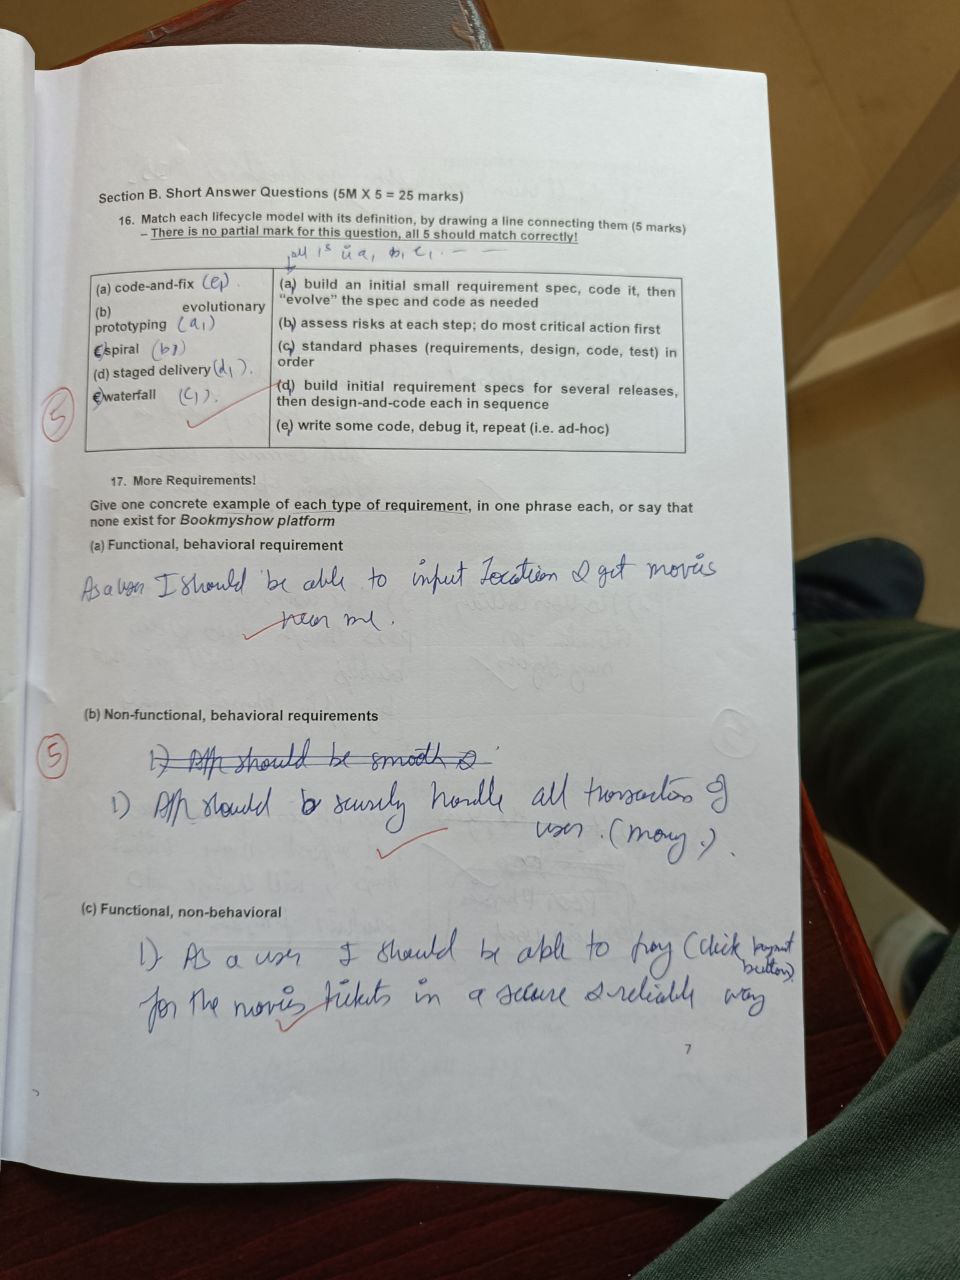 Section B. Short Answer Questions (5M X 5 = 25 marks)
16. Match each lifecycle model with its definition, by drawing a line connecting them (5 marks)
– There is no partial mark for this question, all 5 should match correctly!
a, b, c,
(a) code-and-fix (e1)
(b) evolutionary
prototyping (a1)
spiral (b1)
(d) staged delivery (d1).
waterfall (c1).
5
(a) build an initial small requirement spec, code it, then
"evolve" the spec and code as needed
(b) assess risks at each step; do most critical action first
(c) standard phases (requirements, design, code, test) in
order
(d) build initial requirement specs for several releases,
then design-and-code each in sequence
(e) write some code, debug it, repeat (i.e. ad-hoc)
17. More Requirements!
Give one concrete example of each type of requirement, in one phrase each, or say that
none exist for Bookmyshow platform
(a) Functional, behavioral requirement
As a user I should be able to input Location & get movies
near me.
(b) Non-functional, behavioral requirements
5
1) App should be smooth &
1) App should be securely handle all transactions of
user. (money).
(c) Functional, non-behavioral
1). As a user I should be able to pay (click payment
button)
for the movies tickets in a secure & reliable way
7